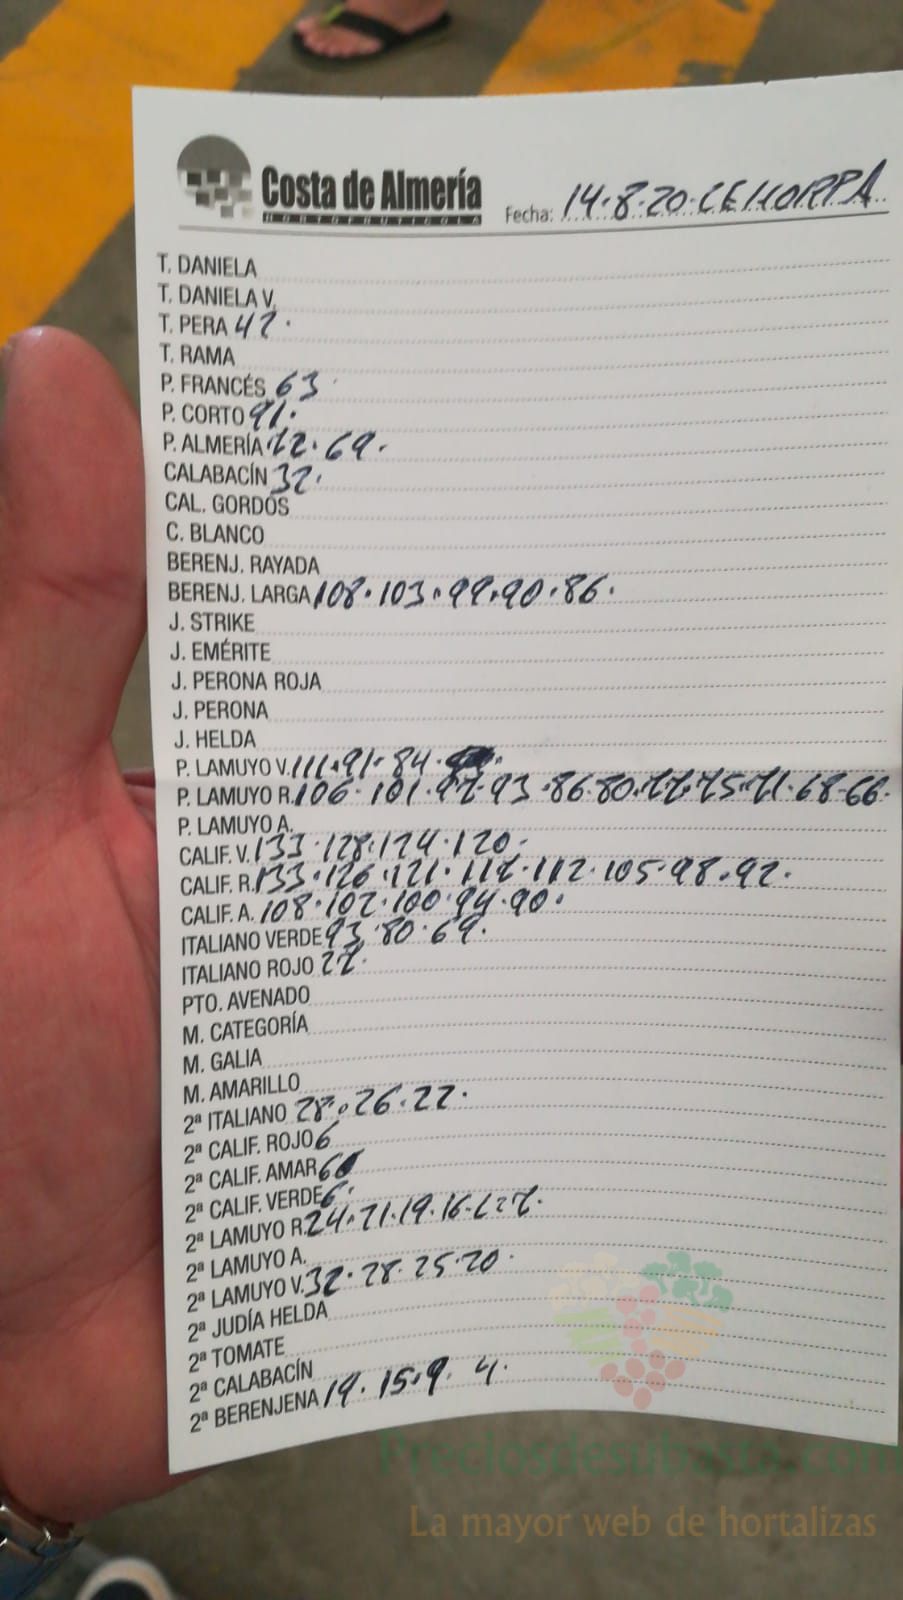 Costa de Almería
HORTOFRUTICOLA
Fecha: 14.8.20.CEHORPA
T. DANIELA
T. DANIELA V.
T. PERA 42.
T. RAMA
P. FRANCÉS 63
P. CORTO 91.
P. ALMERÍA 69.
CALABACÍN 32.
CAL. GORDOS
C. BLANCO
BERENJ. RAYADA
BERENJ. LARGA 108.103.99.90.86.
J. STRIKE
J. EMÉRITE
J. PERONA ROJA
J. PERONA
J. HELDA
P. LAMUYO V. 111.91.84.
P. LAMUYO R. 106.101.97.93.86.80.77.75.71.68.66.
P. LAMUYO A.
CALIF. V. 133.128.124.120.
CALIF. R. 133.126.121.117.112.105.98.92.
CALIF. A. 108.102.100.94.90.
ITALIANO VERDE 93.80.69.
ITALIANO ROJO 27.
PTO. AVENADO
M. CATEGORÍA
M. GALIA
M. AMARILLO
2ª ITALIANO 28.26.22.
2ª CALIF. ROJO 6
2ª CALIF. AMAR 6
2ª CALIF. VERDE 6.
2ª LAMUYO R. 24.21.19.16.
2ª LAMUYO A.
2ª LAMUYO V. 32.28.25.20.
2ª JUDÍA HELDA
2ª TOMATE
2ª CALABACÍN
2ª BERENJENA 19.15.9.4.
Preciosdesubasta.com
La mayor web de hortalizas